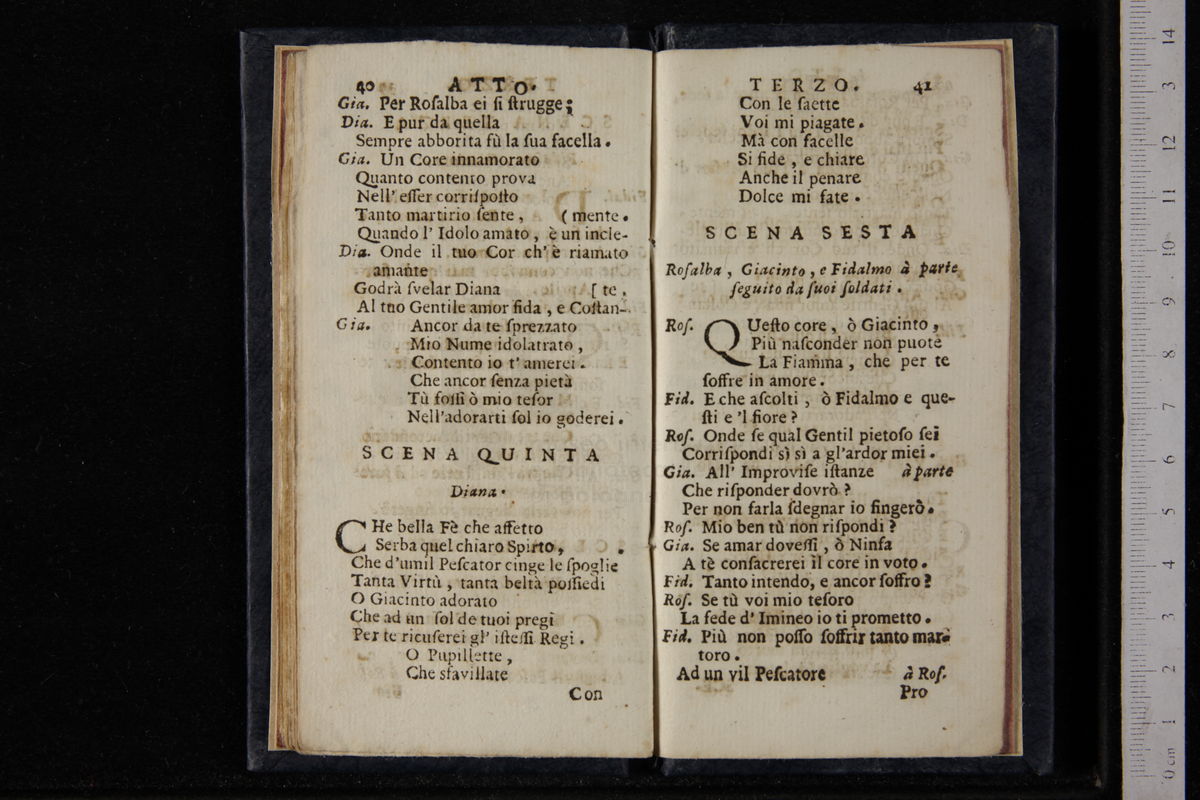 40 ATTO.
Gia. Per Rosalba ei si strugge;
Dia. E pur da quella
Sempre abborita fù la sua facella.
Gia. Un Core innamorato
Quanto contento prova
Nell' esser corrisposto
Tanto martirio sente, (mente.
Quando l' Idolo amato, è un incle-
Dia. Onde il tuo Cor ch' è riamato
amante
Godrà svelar Diana [te.
Al tuo Gentile amor fida, e Costan-
Gia. Ancor da te sprezzato
Mio Nume idolatrato,
Contento io t' amerei.
Che ancor senza pietà
Tù fossi ò mio tesor
Nell'adorarti sol io goderei.
SCENA QUINTA
Diana.
CHe bella Fè che affetto
Serba quel chiaro Spirto,
Che d'umil Pescator cinge le spoglie
Tanta Virtù, tanta beltà possiedi
O Giacinto adorato
Che ad un sol de tuoi pregi
Per te ricuserei gl' istessi Regi.
O Pupillette,
Che sfavillate
Con
TERZO. 41
Con le saette
Voi mi piagate.
Mà con facelle
Si fide, e chiare
Anche il penare
Dolce mi fate.
SCENA SESTA
Rosalba, Giacinto, e Fidalmo à parte
seguito da suoi soldati.
Ros. QUesto core, ò Giacinto,
Più nasconder non puote
La Fiamma, che per te
soffre in amore.
Fid. E che ascolti, ò Fidalmo e que-
sti e 'l fiore?
Ros. Onde se qual Gentil pietoso sei
Corrispondi sì sì a gl'ardor miei.
Gia. All' Improvise istanze à parte
Che risponder dovrò?
Per non farla sdegnar io fingerò.
Ros. Mio ben tù non rispondi?
Gia. Se amar dovessi, ò Ninfa
A tè consacrerei il core in voto.
Fid. Tanto intendo, e ancor soffro?
Ros. Se tù voi mio tesoro
La fede d' Imineo io ti prometto.
Fid. Più non posso soffrir tanto mar-
toro.
Ad un vil Pescatore à Ros.
Pro
0 cm 1 2 3 4 5 6 7 8 9 10 11 12 13 14